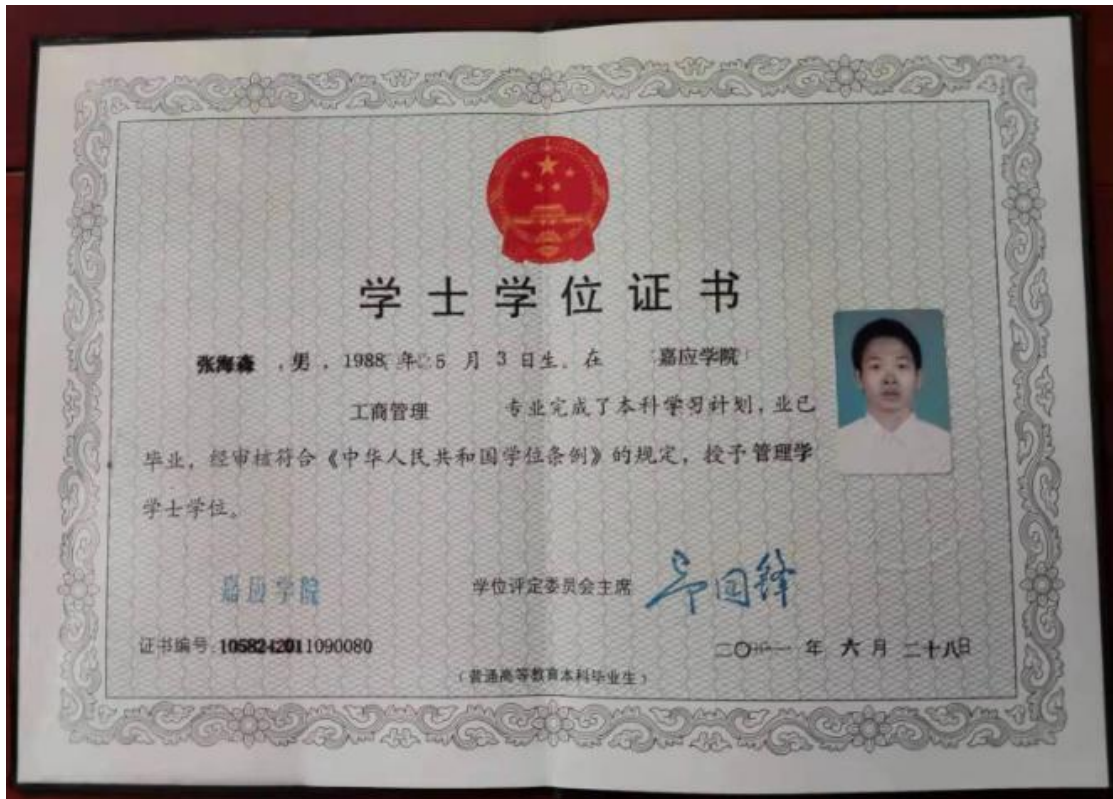 学士学位证书
张海森，男，1988年5月3日生。在 嘉应学院
工商管理 专业完成了本科学习计划，业已
毕业，经审核符合《中华人民共和国学位条例》的规定，授予管理学
学士学位。
嘉应学院 学位评定委员会主席
证书编号 1058242011090080 二〇一一年六月二十八日
（普通高等教育本科毕业生）